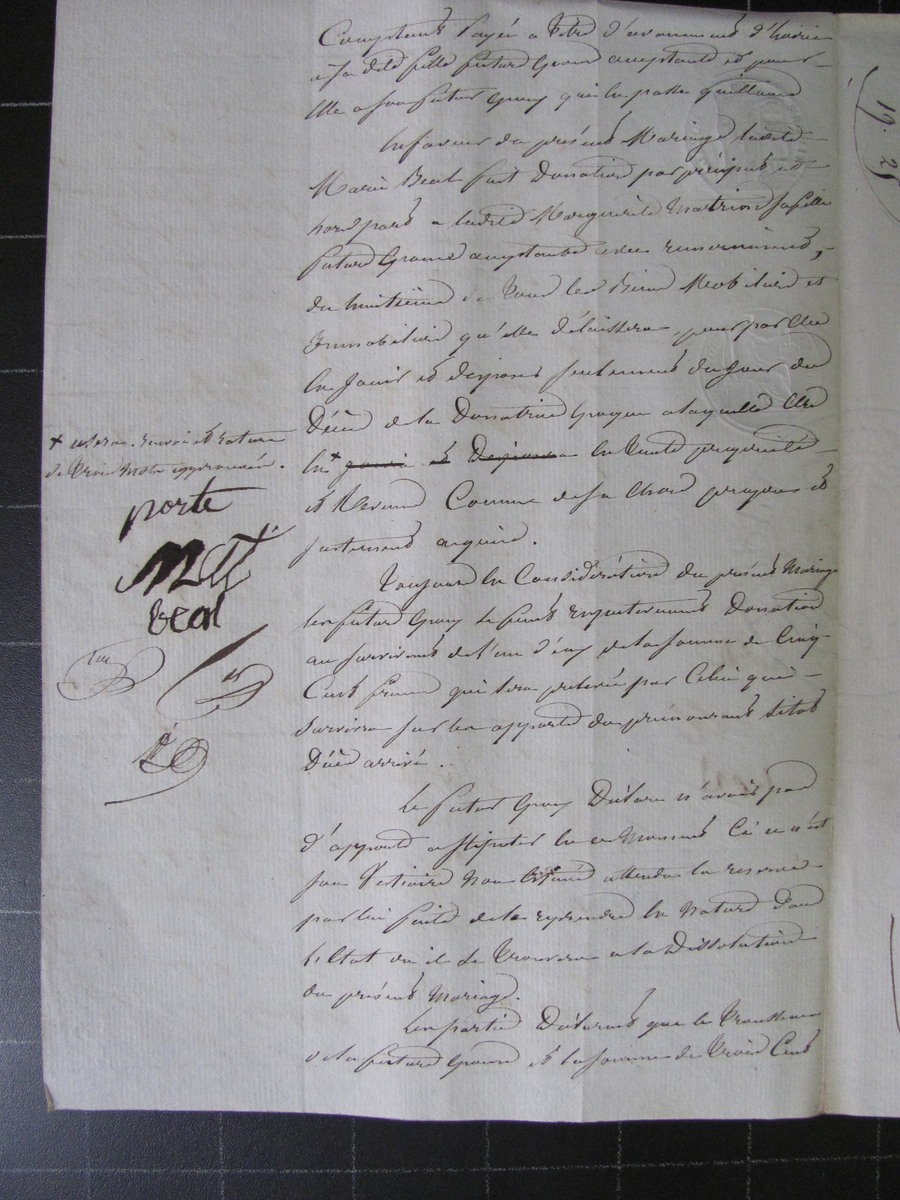 Comptant payée a titre d'avancement d'hoirie
a sa dite fille future Epouse acceptante et pour
Elle a son futur Epoux qui la passe quittance
En faveur du présent Mariage ladite
Marie Beal fait Donation par préciput et
hors part a ladite Marguerite Matrion sa fille
future Epouse acceptante avec remerciement,
du huitième de Tous les Biens Mobiliers et
Immobiliers qu'elle délaissera, pour par Elle
En Jouir et disposer seulement du Jour du
Décès de la Donatrice Epoque a laquelle Elle
En + jouira et Disposera en Toute propriété
et Revenu Comme de sa Chose propre et
justement acquise.
+ usera. renvoi et rature
de Trois Mots approuvés.
porte
Mat
beal
Toujours En Considération du présent Mariage
les futurs Epoux se font respectivement Donation
au survivant de l'un d'eux de la somme de Cinq
Cents francs qui sera prelevée par Celui qui
survivra sur les apports du prémourant sitot
Décès arrivé.
Le futur Epoux Déclare n'avoir pas
d'apports a stipuler En ce Moment Si ce n'est
son Vestiaire Non Estimé attendu la reserve
par lui faite de le reprendre En Nature dans
l'Etat ou il se Trouvera a la Dissolution
du présent Mariage.
Les parties Déclarent que le Trousseau
de la future Epouse et la somme de Trois Cents
19. 25